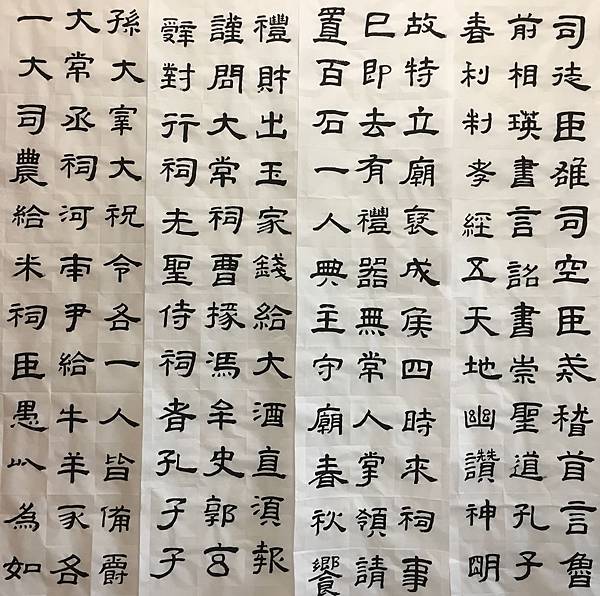 司徒臣雄司空臣戒稽首言魯
前相瑛書言詔書崇聖道孔子
春利制孝經五天地幽讚神明
故特立廟褒成侯四時來祠事
已即去有禮器無常人掌領請
置百石一人典主守廟春秋饗
禮財出王家錢給大酒直須報
謹問大常祠曹掾馮牟史郭玄
辤對行祠先聖侍祠者孔子子
孫大宰大祝令各一人皆備爵
大常丞祠河南尹給牛羊豕各
一大司農給米祠臣愚以為如